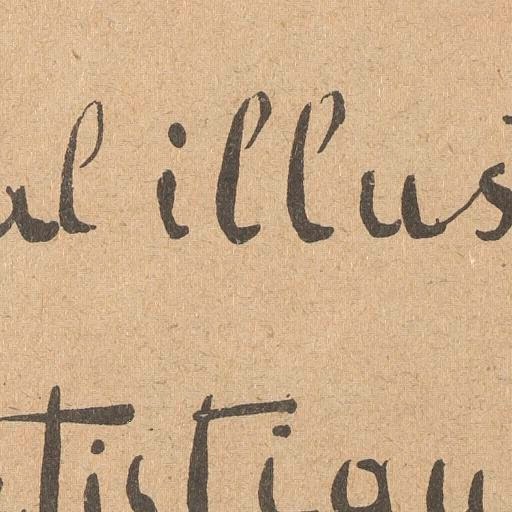 al illus
tistiqu